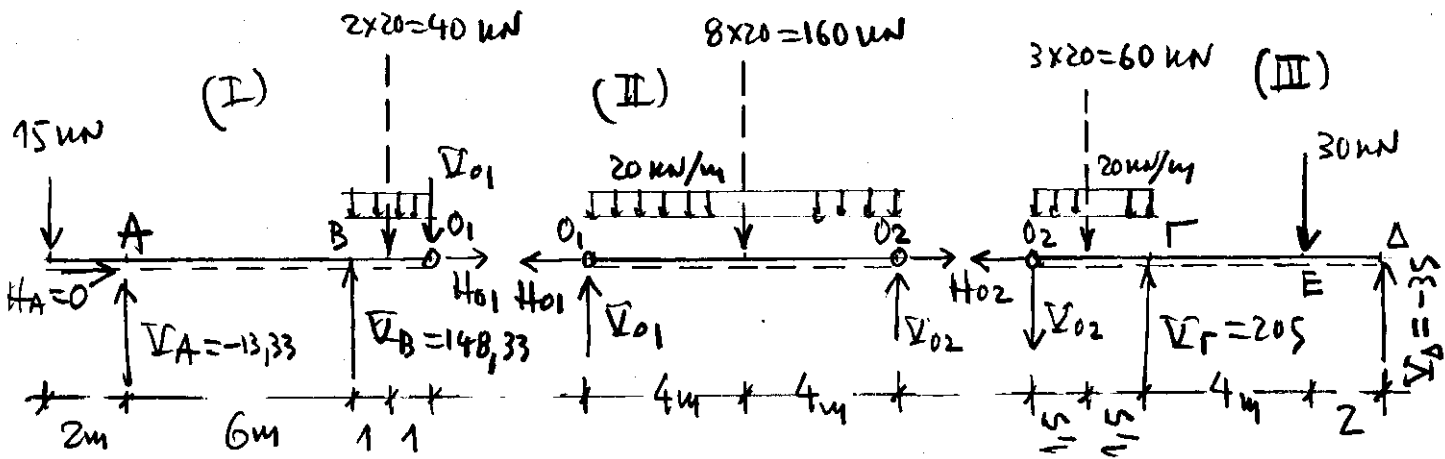 2x20=40 kN
8x20=160 kN
3x20=60 kN
(I)
(II)
(III)
15 kN
V01
20 kN/m
20 kN/m
30 kN
A
B
O1
O1
O2
O2
Γ
E
Δ
HA=0
H01
H01
H02
VA=-13,33
VB=148,33
V01
V02
V02
VΓ=205
VΔ=-35
2m
6m
1
1
4m
4m
1,5
1,5
4m
2